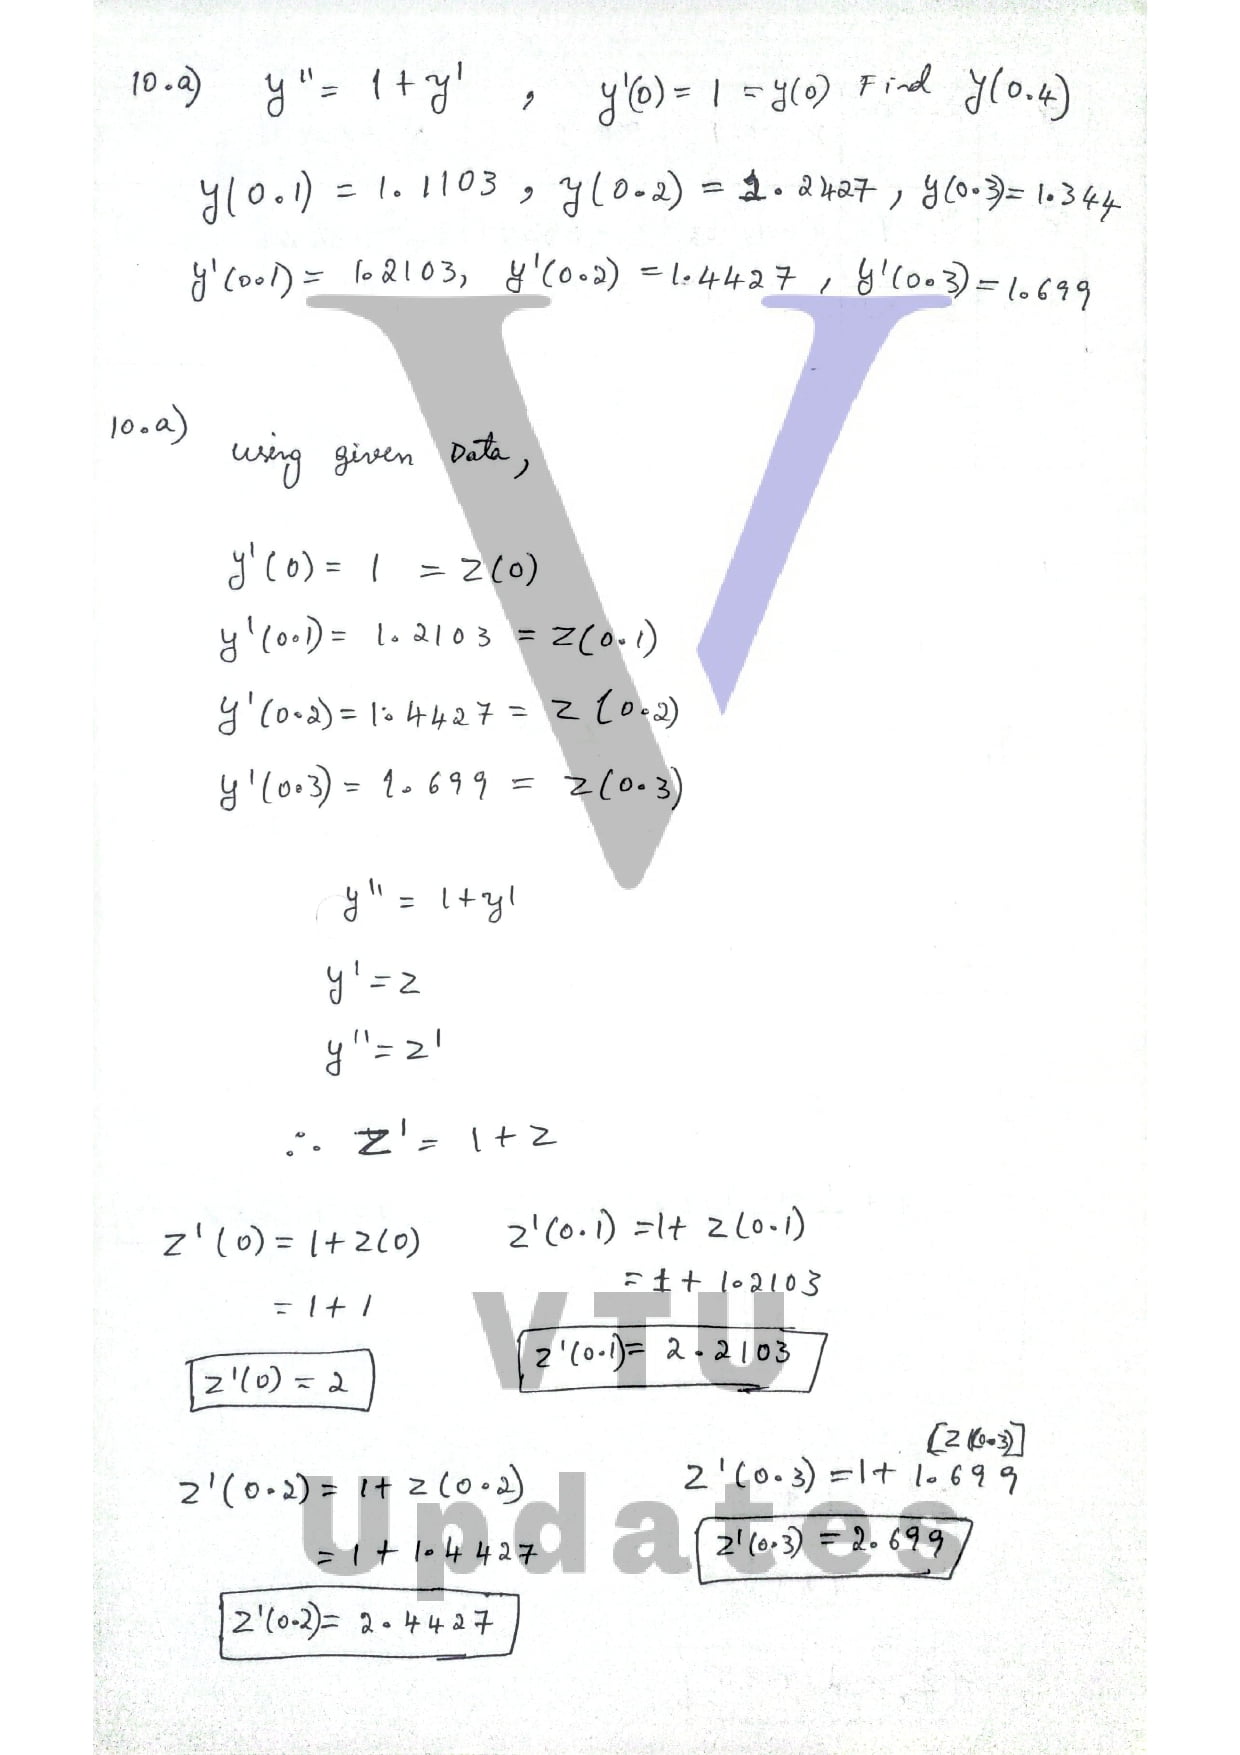 10.a) y" = 1 + y' , y'(0) = 1 = y(0) Find y(0.4)
y(0.1) = 1.1103 , y(0.2) = 1.2427 , y(0.3) = 1.344
y'(0.1) = 1.2103, y'(0.2) = 1.4427 , y'(0.3) = 1.699
10.a) using given Data,
y'(0) = 1 = z(0)
y'(0.1) = 1.2103 = z(0.1)
y'(0.2) = 1.4427 = z(0.2)
y'(0.3) = 1.699 = z(0.3)
y" = 1 + y'
y' = z
y" = z'
∴ z' = 1 + z
z'(0) = 1 + z(0)
= 1 + 1
z'(0) = 2
z'(0.1) = 1 + z(0.1)
= 1 + 1.2103
z'(0.1) = 2.2103
z'(0.2) = 1 + z(0.2)
= 1 + 1.4427
z'(0.2) = 2.4427
[z(0.3)]
z'(0.3) = 1 + 1.699
z'(0.3) = 2.699
VTU
Updates